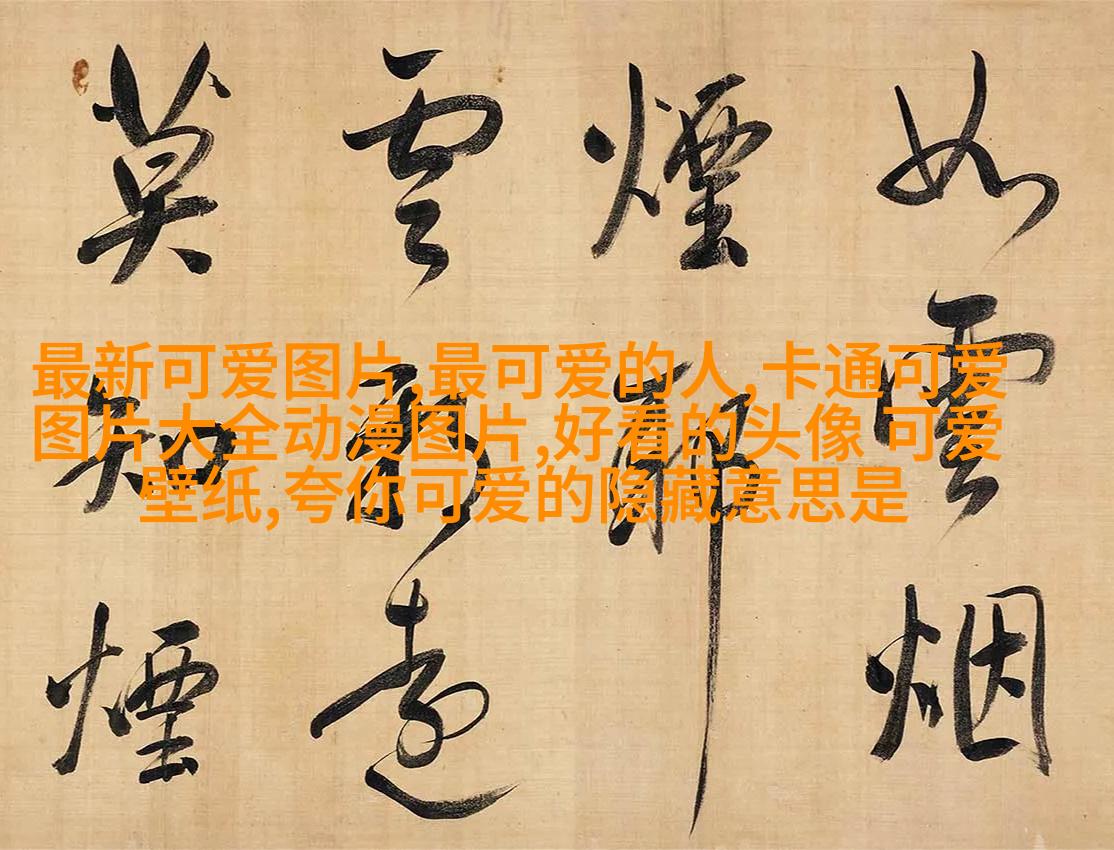 最新可爱图片,最可爱的人,卡通可爱
图片大全动漫图片,好看的头像 可爱
壁纸,夸你可爱的隐藏意思是
如雲烟
煙
雲遠
莫知煙